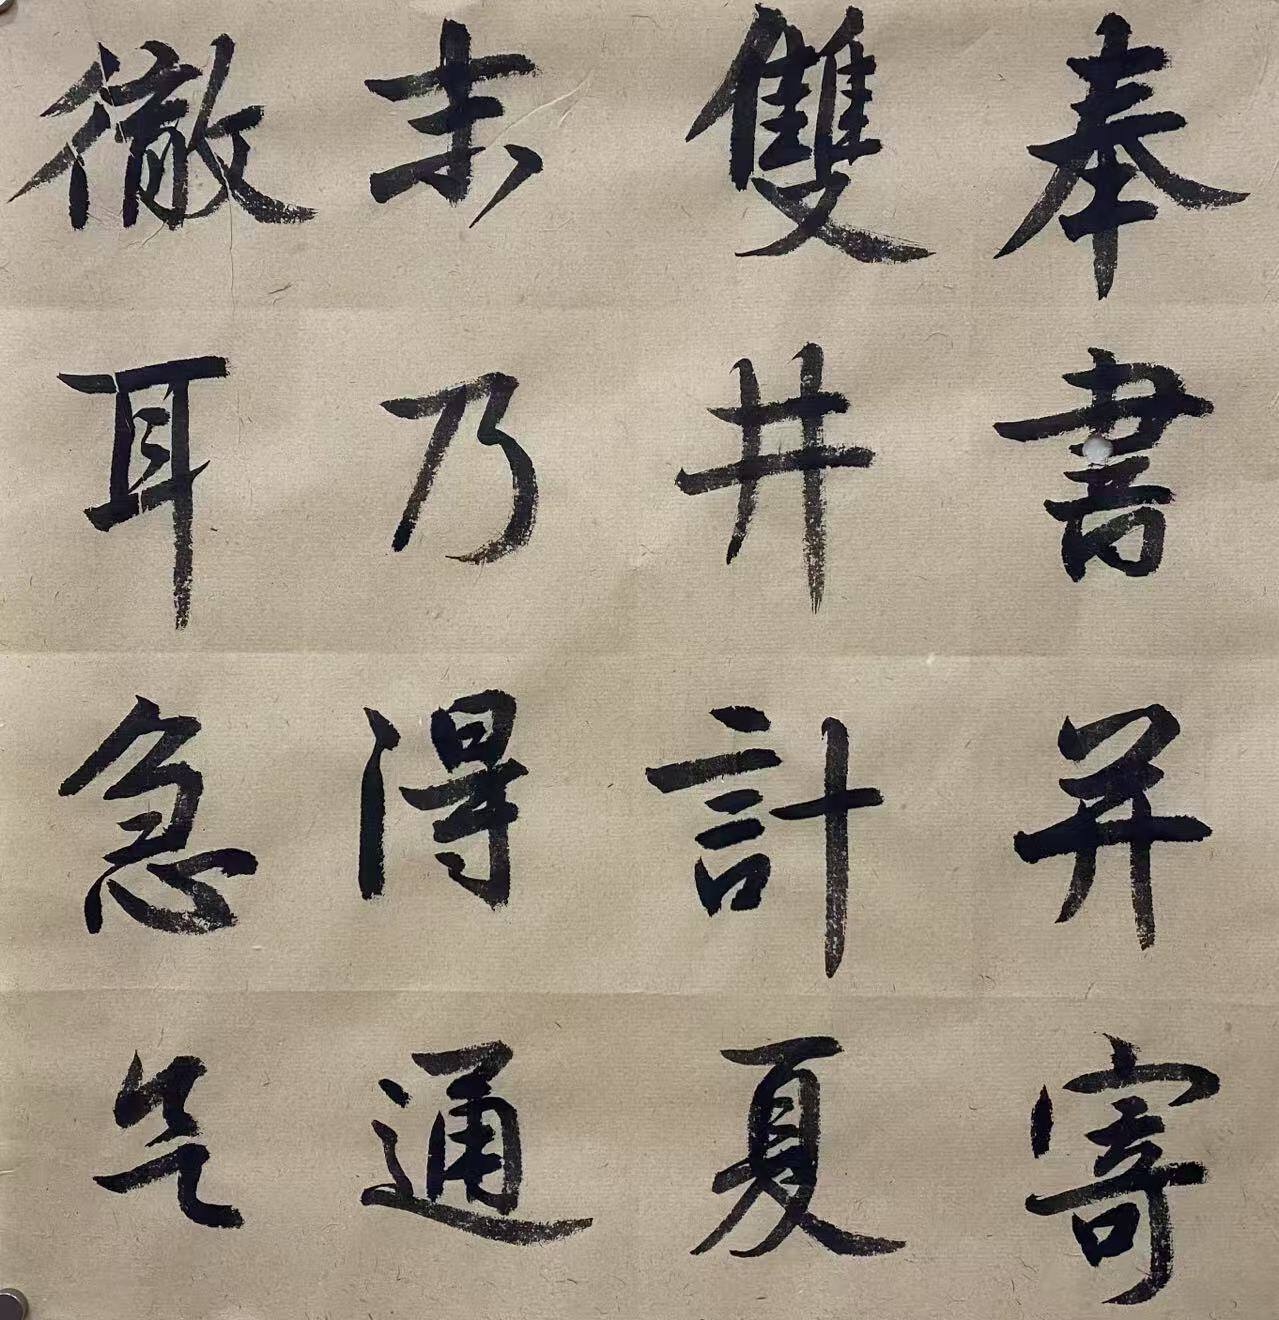 奉書并寄
雙井計夏
末乃得通
徹耳急足